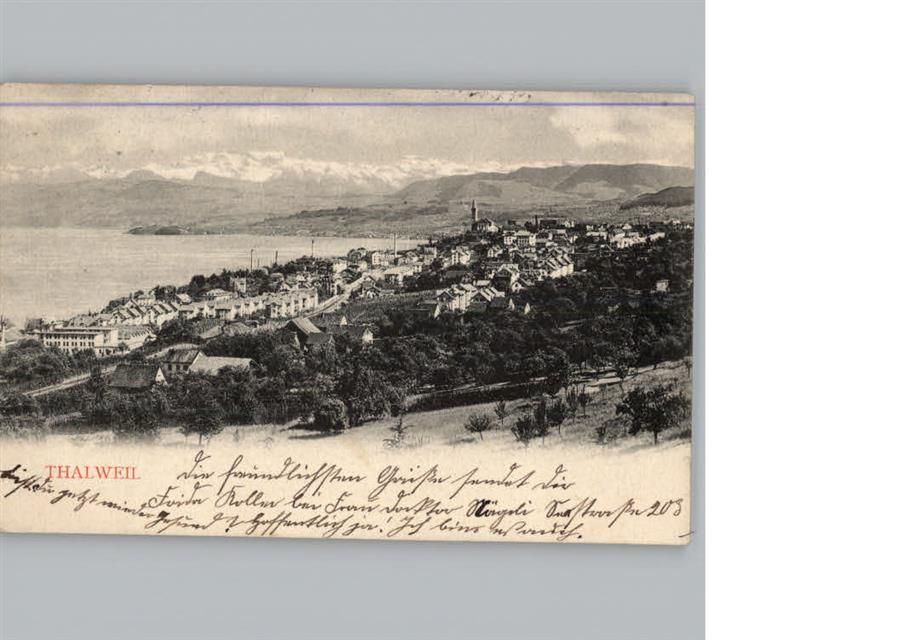 THALWEIL
Die freundlichsten Grüsse sendet dir
Frida Koller bei Frau Docktor Nägeli Seestrasse 203
bist du jetzt wieder
Gesund? Hoffentlich ja! Ich bins es auch.